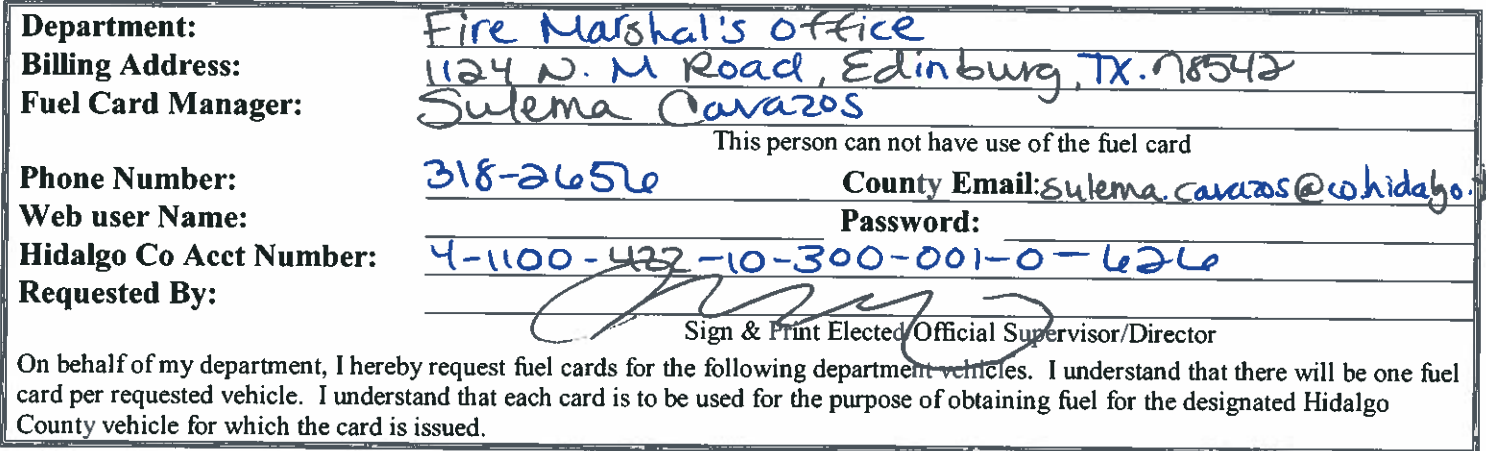 Department: Fire Marshal's Office
Billing Address: 1124 N. M Road, Edinburg, TX. 78542
Fuel Card Manager: Sulema Cavazos
This person can not have use of the fuel card
Phone Number: 318-2656 County Email: sulema.cavazos@co.hidalgo.
Web user Name: Password:
Hidalgo Co Acct Number: 4-1100-422-10-300-001-0-626
Requested By:
Sign & Print Elected Official Supervisor/Director
On behalf of my department, I hereby request fuel cards for the following department vehicles. I understand that there will be one fuel
card per requested vehicle. I understand that each card is to be used for the purpose of obtaining fuel for the designated Hidalgo
County vehicle for which the card is issued.